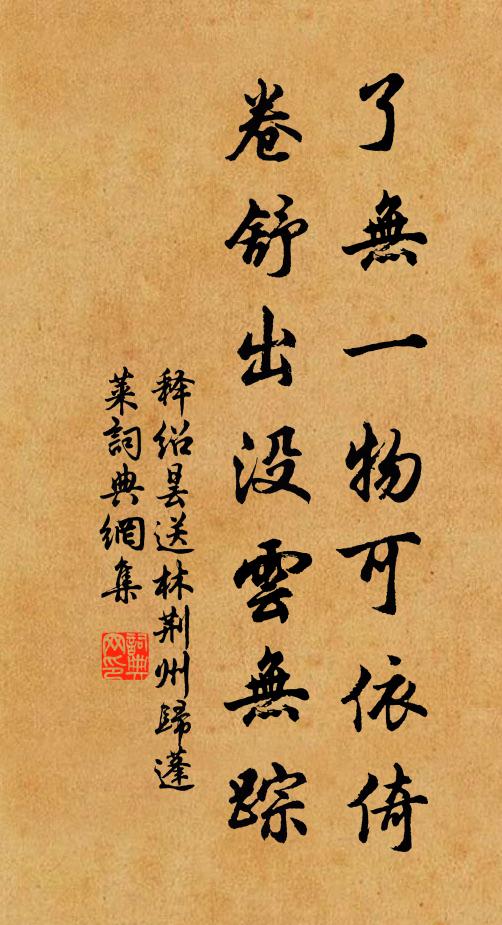 了無一物可依倚
卷舒出没雲無踪
释绍昙送林荆州歸蓬
萊詞典網集
詞典网印